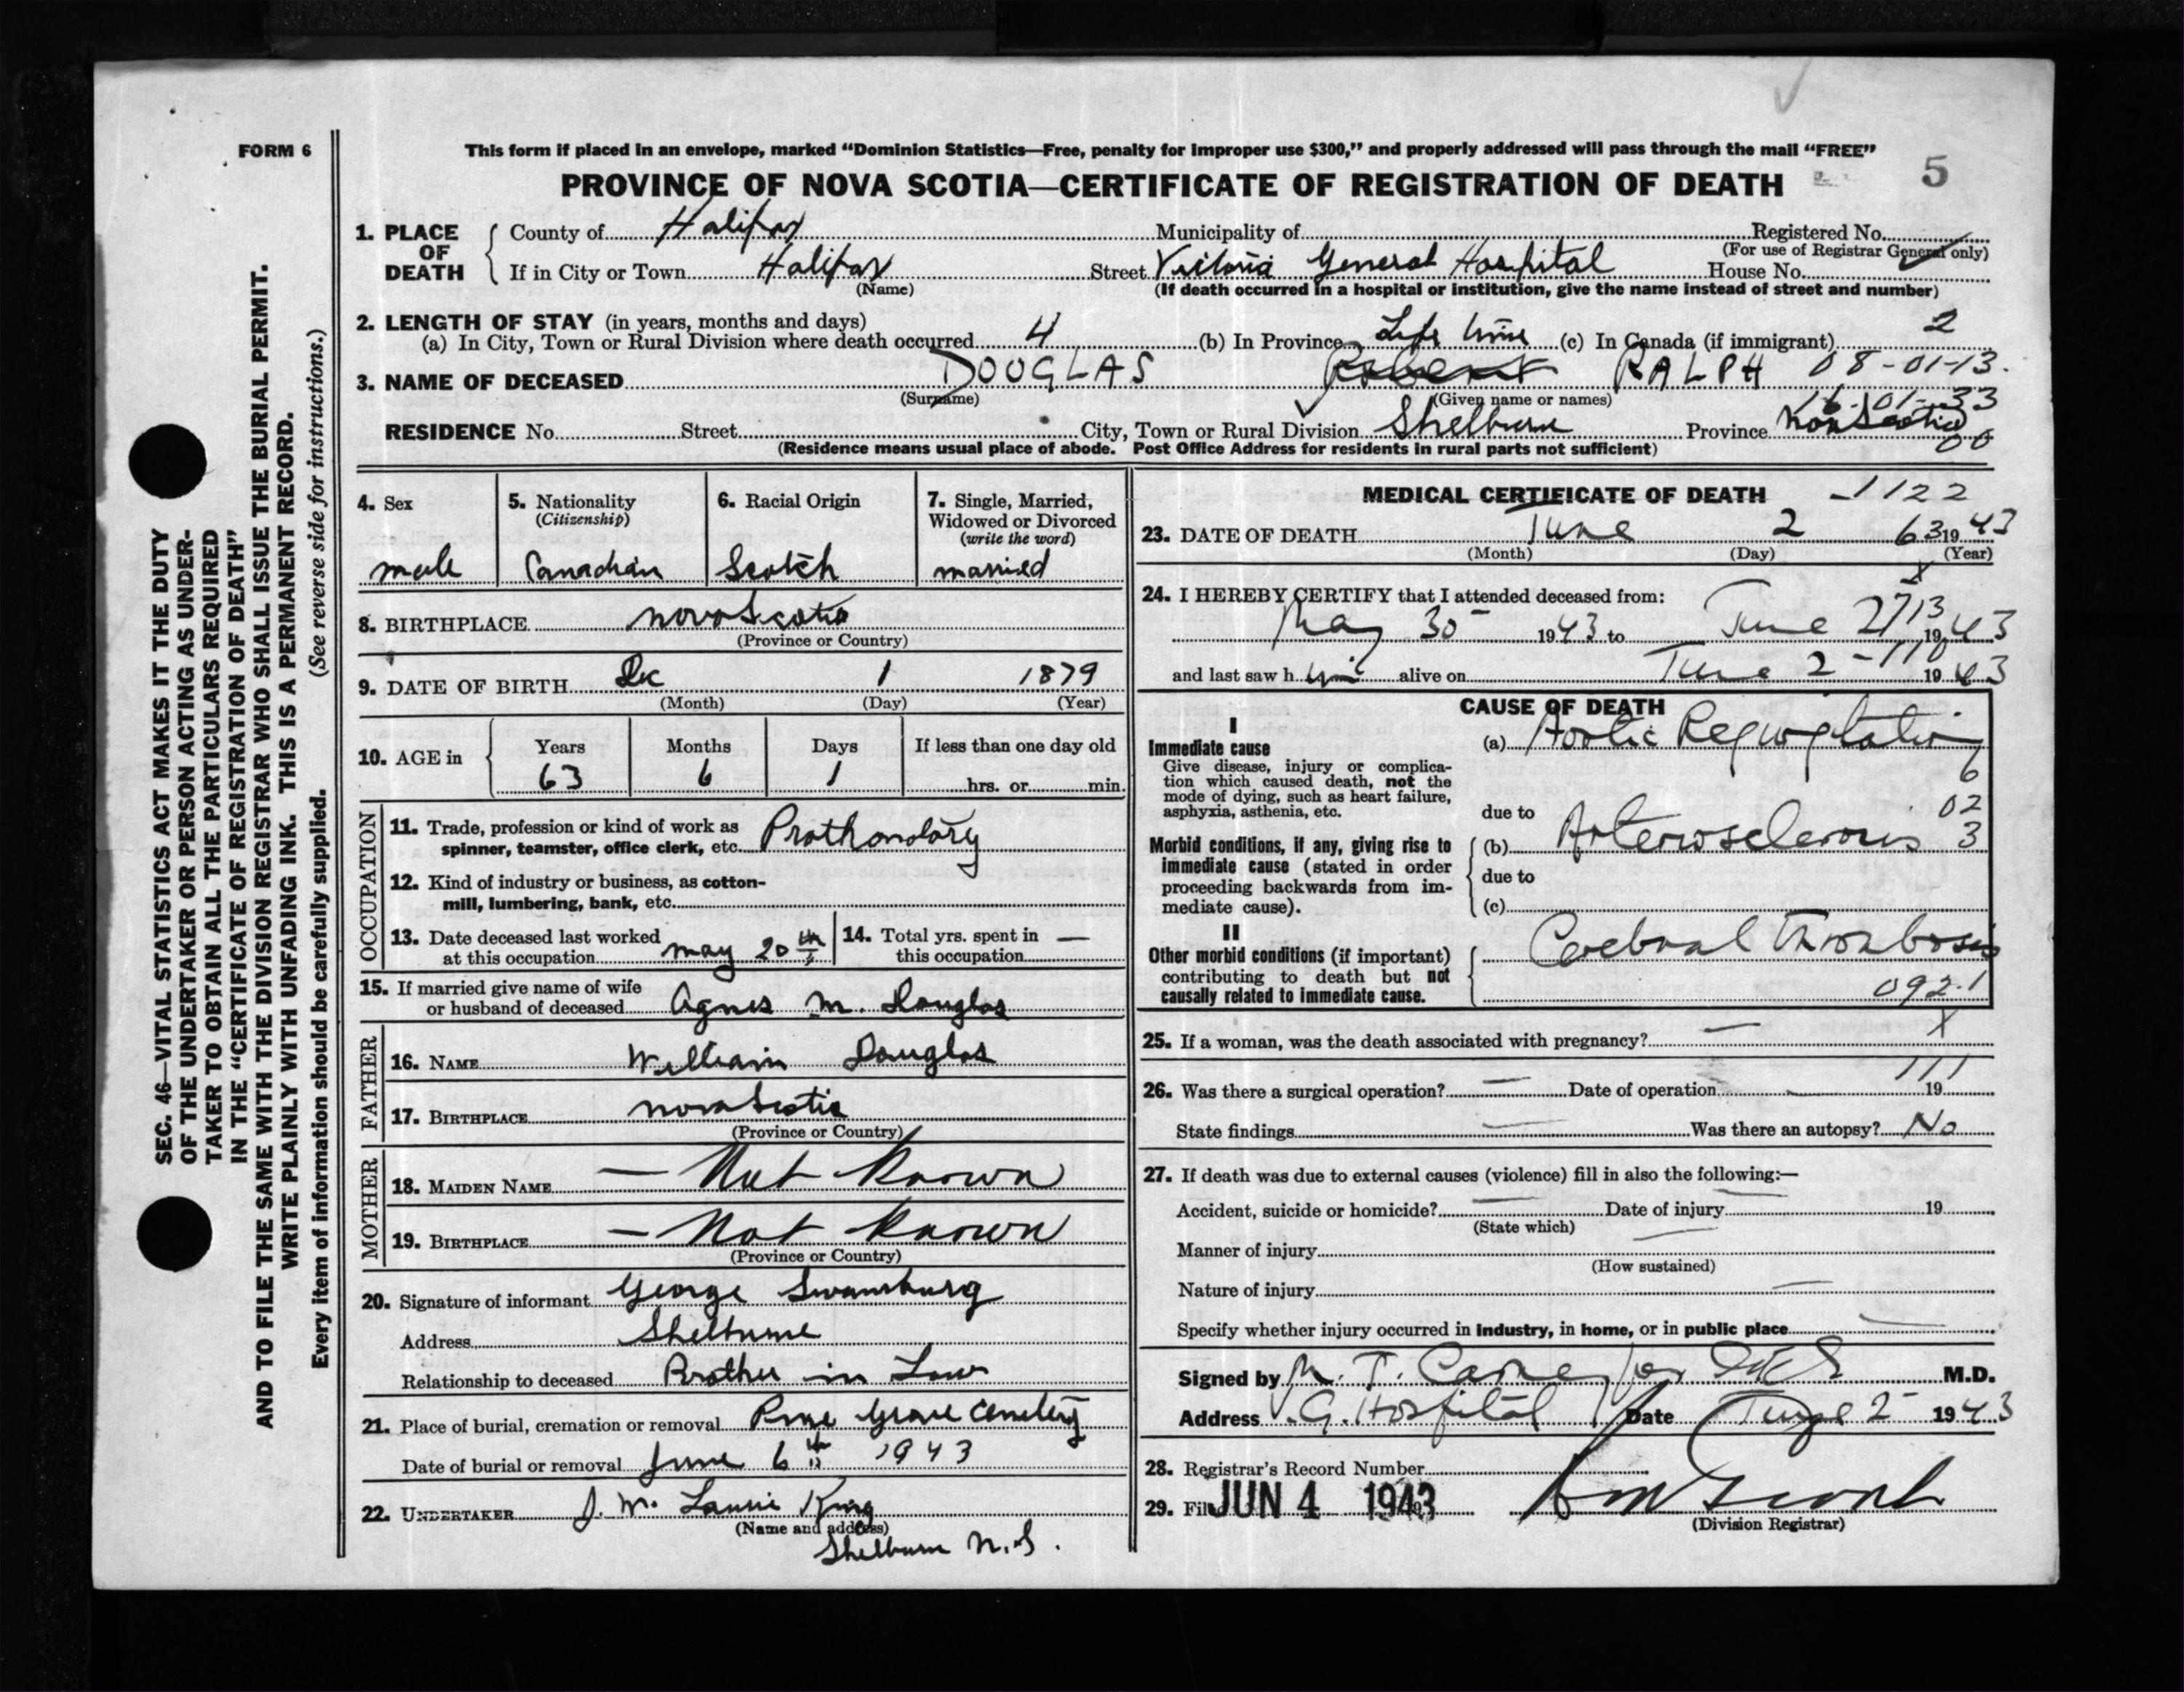 FORM 6
This form if placed in an envelope, marked “Dominion Statistics—Free, penalty for improper use $300,” and properly addressed will pass through the mail “FREE”
5
PROVINCE OF NOVA SCOTIA—CERTIFICATE OF REGISTRATION OF DEATH
SEC. 46—VITAL STATISTICS ACT MAKES IT THE DUTY
OF THE UNDERTAKER OR PERSON ACTING AS UNDER-
TAKER TO OBTAIN ALL THE PARTICULARS REQUIRED
IN THE “CERTIFICATE OF REGISTRATION OF DEATH”
AND TO FILE THE SAME WITH THE DIVISION REGISTRAR WHO SHALL ISSUE THE BURIAL PERMIT.
WRITE PLAINLY WITH UNFADING INK. THIS IS A PERMANENT RECORD.
Every item of information should be carefully supplied. (See reverse side for instructions.)
1. PLACE OF DEATH
County of Halifax Municipality of Registered No.
(For use of Registrar General only)
If in City or Town Halifax Street Victoria General Hospital House No.
(Name) (If death occurred in a hospital or institution, give the name instead of street and number)
2. LENGTH OF STAY (in years, months and days)
(a) In City, Town or Rural Division where death occurred 4 (b) In Province Life time (c) In Canada (if immigrant) 2
3. NAME OF DECEASED DOUGLAS Robert RALPH 08-01-13.
(Surname) (Given name or names) 16-01-33
RESIDENCE No. Street City, Town or Rural Division Shelburne Province Nova Scotia
00
(Residence means usual place of abode. Post Office Address for residents in rural parts not sufficient)
4. Sex
male
5. Nationality
(Citizenship)
Canadian
6. Racial Origin
Scotch
7. Single, Married,
Widowed or Divorced
(write the word)
married
8. BIRTHPLACE nova Scotia
(Province or Country)
9. DATE OF BIRTH Dec 1 1879
(Month) (Day) (Year)
10. AGE in
Years Months Days If less than one day old
63 6 1 hrs. or min.
OCCUPATION
11. Trade, profession or kind of work as
spinner, teamster, office clerk, etc. Prothonotary
12. Kind of industry or business, as cotton-
mill, lumbering, bank, etc.
13. Date deceased last worked
at this occupation may 20th
14. Total yrs. spent in
this occupation —
15. If married give name of wife
or husband of deceased Agnes M. Douglas
FATHER
16. NAME William Douglas
17. BIRTHPLACE nova Scotia
(Province or Country)
MOTHER
18. MAIDEN NAME — Not Known
19. BIRTHPLACE — Not Known
(Province or Country)
20. Signature of informant George Swansburg
Address Shelburne
Relationship to deceased Brother in Law
21. Place of burial, cremation or removal Pine Grove Cemetery
Date of burial or removal June 6th 1943
22. UNDERTAKER J. M. Laurie King
(Name and address)
Shelburne N.S.
MEDICAL CERTIFICATE OF DEATH -1122
23. DATE OF DEATH June 2 63 1943
(Month) (Day) (Year)
24. I HEREBY CERTIFY that I attended deceased from:
May 30 1943 to June 2 1943
and last saw him alive on June 2 1943
CAUSE OF DEATH
I
Immediate cause
Give disease, injury or complica-
tion which caused death, not the
mode of dying, such as heart failure,
asphyxia, asthenia, etc.
(a) Aortic Regurgitation
6
due to 02
Morbid conditions, if any, giving rise to
immediate cause (stated in order
proceeding backwards from im-
mediate cause).
(b) Arteriosclerosis 3
due to
(c)
II
Other morbid conditions (if important)
contributing to death but not
causally related to immediate cause.
Cerebral Thrombosis
092.1
25. If a woman, was the death associated with pregnancy? — X
111
26. Was there a surgical operation? — Date of operation — 19
State findings — Was there an autopsy? No
27. If death was due to external causes (violence) fill in also the following:—
Accident, suicide or homicide? — Date of injury — 19
(State which)
Manner of injury —
(How sustained)
Nature of injury —
Specify whether injury occurred in industry, in home, or in public place —
Signed by M. T. for M.D.
Address V.G. Hospital Date June 2 1943
28. Registrar's Record Number
29. Filed JUN 4 1943
(Division Registrar)